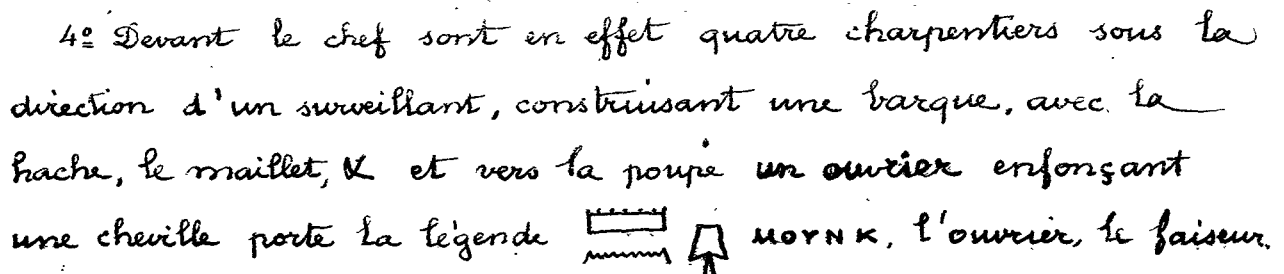 4º Devant le chef sont en effet quatre charpentiers sous la
direction d'un surveillant, construisant une barque, avec la
hache, le maillet, K et vers la poupe un ouvrier enfonçant
une cheville porte la légende 𓏠𓈖𓐍 ⲙⲟⲩⲛⲕ, l'ouvrier, le faiseur.